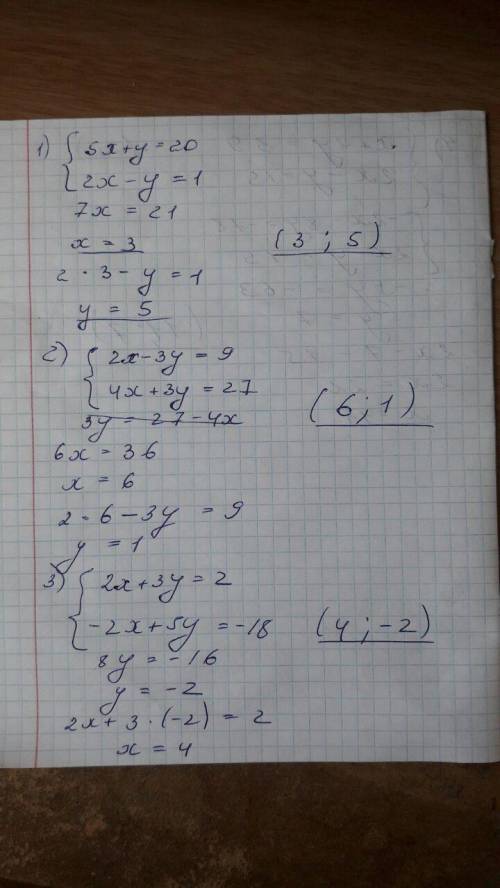 1) { 5x+y=20
2x-y=1
7x=21
x=3 (3; 5)
2·3-y=1
y=5
2) { 2x-3y=9
4x+3y=27
3y=27-4x (6; 1)
6x=36
x=6
2·6-3y=9
y=1
3) { 2x+3y=2
-2x+5y=-18 (4; -2)
8y=-16
y=-2
2x+3·(-2)=2
x=4